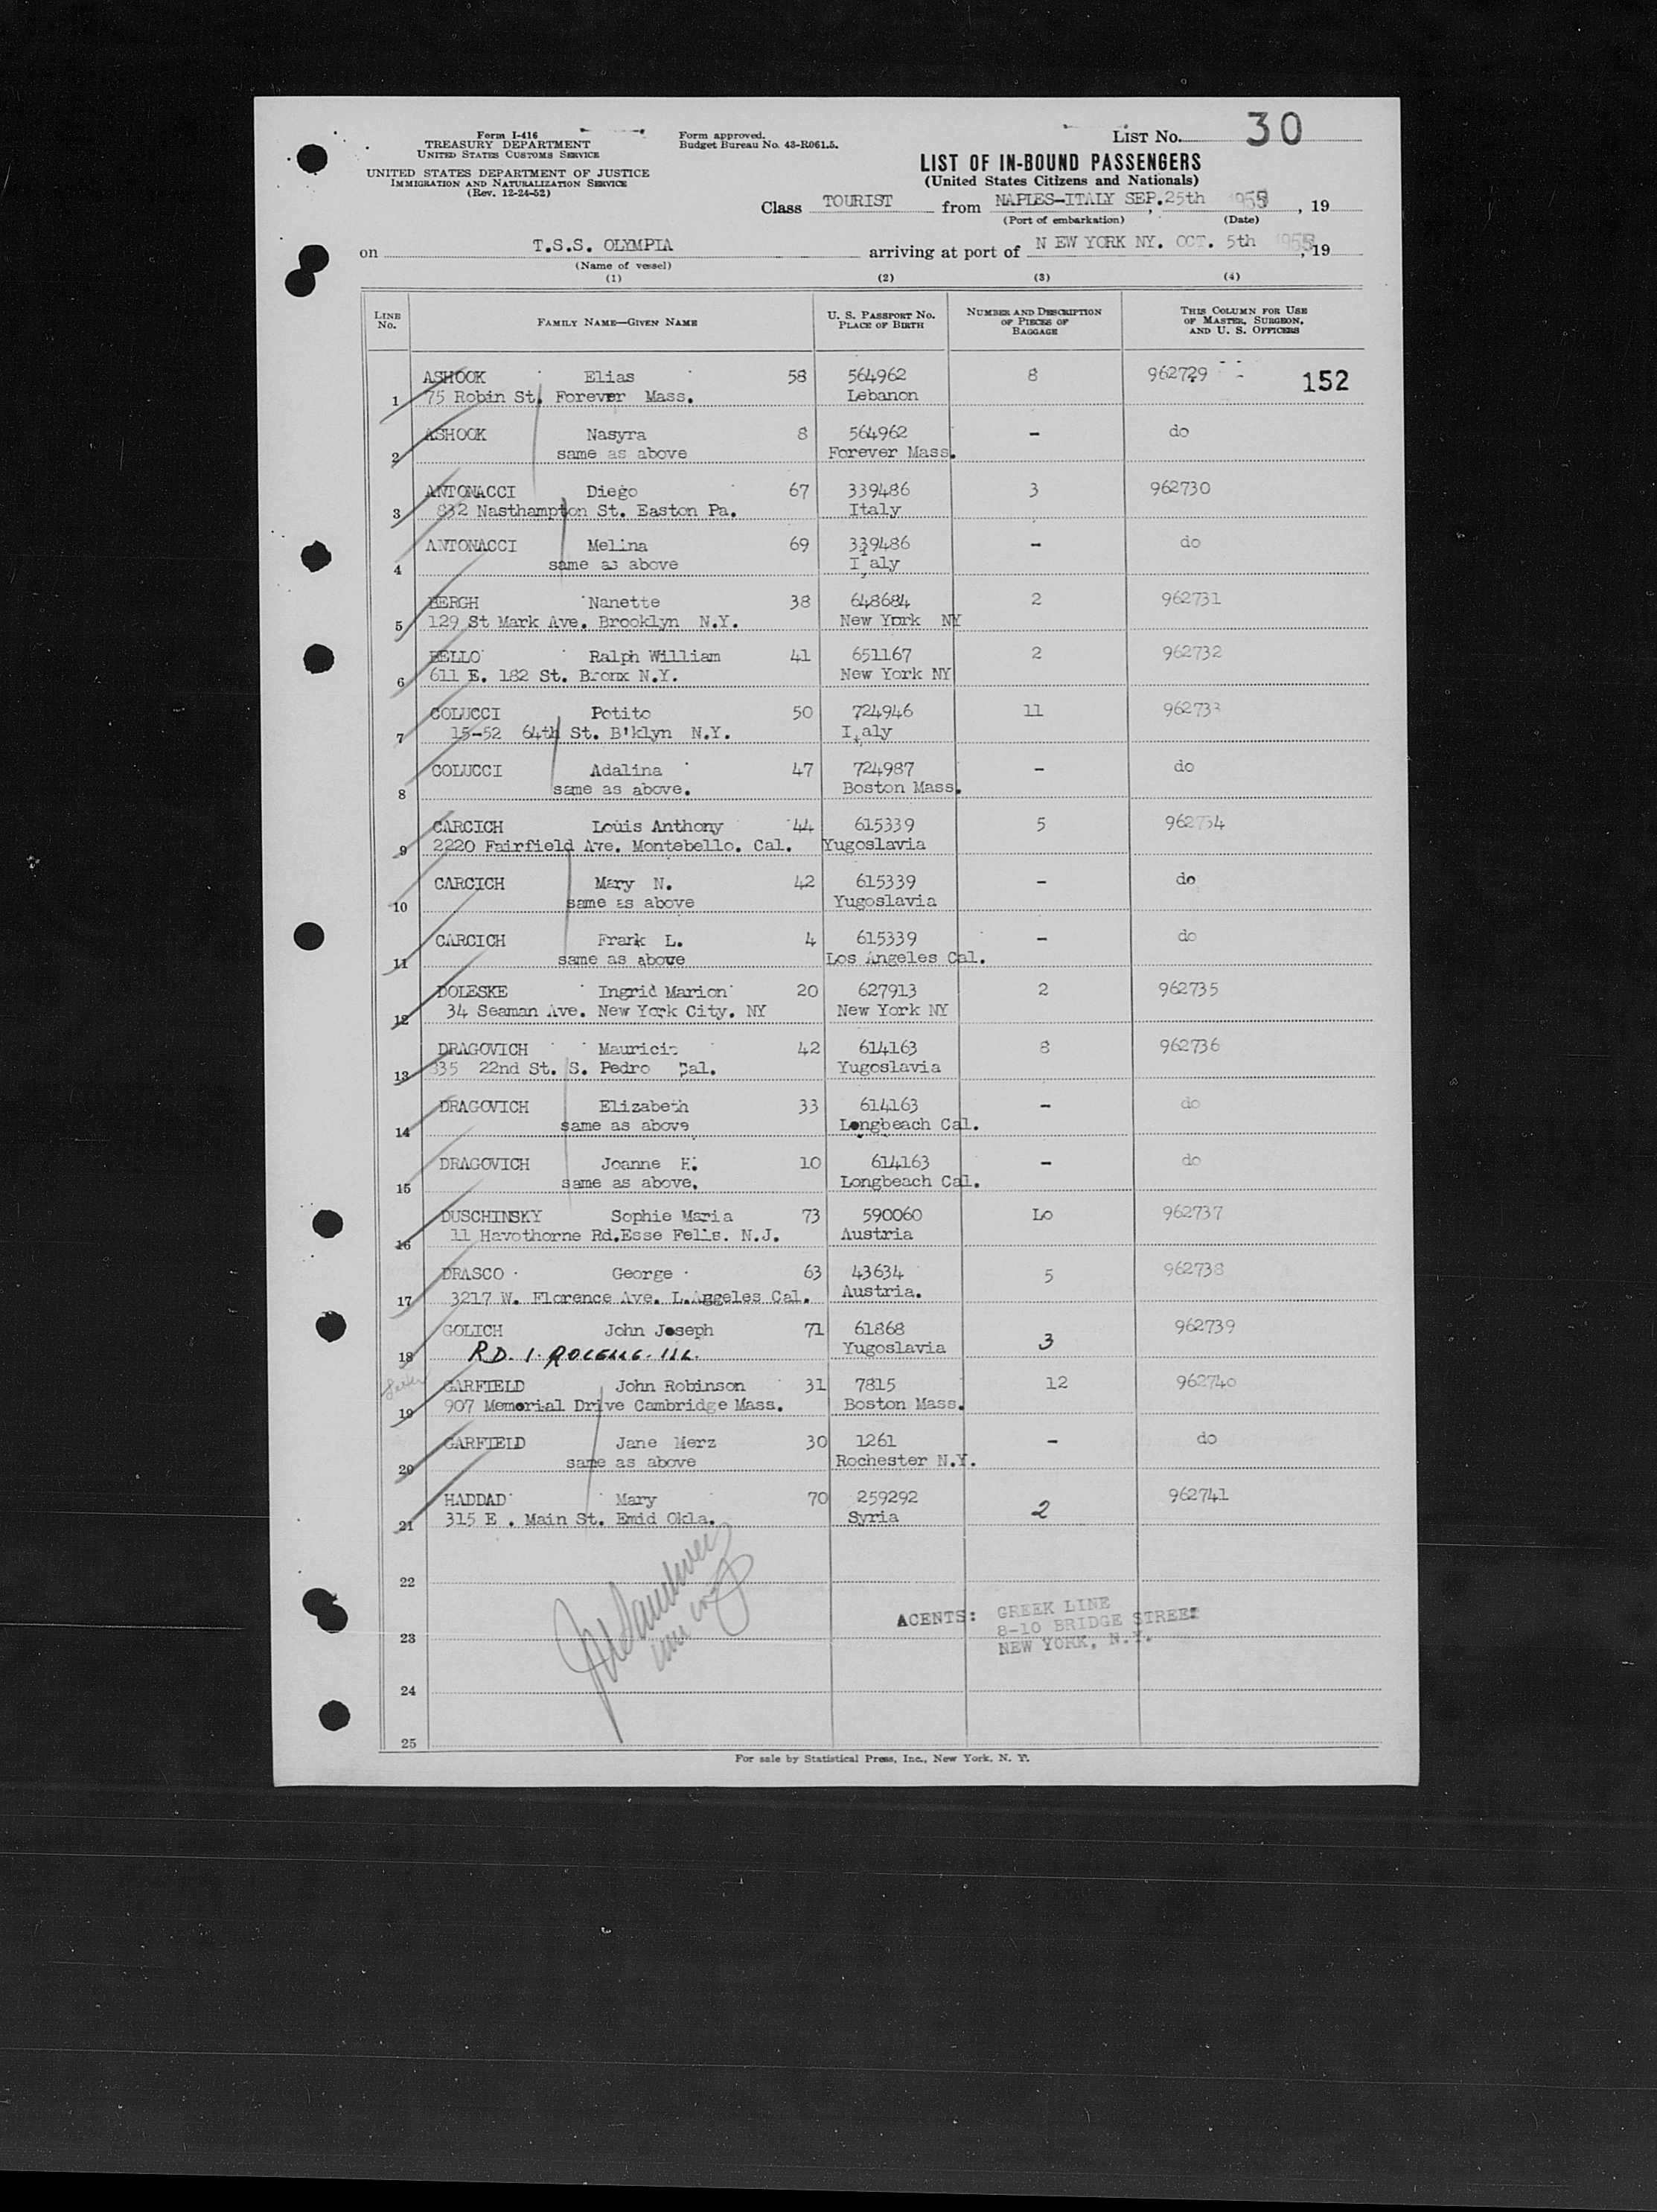 Form I-416
TREASURY DEPARTMENT
UNITED STATES CUSTOMS SERVICE
UNITED STATES DEPARTMENT OF JUSTICE
IMMIGRATION AND NATURALIZATION SERVICE
(Rev. 12-24-52)
Form approved.
Budget Bureau No. 43-R061.5.
LIST No. 30
LIST OF IN-BOUND PASSENGERS
(United States Citizens and Nationals)
Class TOURIST from NAPLES-ITALY SEP.25th 1955, 19
(Port of embarkation) (Date)
on T.S.S. OLYMPIA arriving at port of N EW YORK NY. OCT. 5th 1955, 19
(Name of vessel)
(1) (2) (3) (4)
LINE No. FAMILY NAME—GIVEN NAME U. S. PASSPORT No. PLACE OF BIRTH NUMBER AND DESCRIPTION OF PIECES OF BAGGAGE THIS COLUMN FOR USE OF MASTER, SURGEON, AND U. S. OFFICERS
ASHOOK Elias 58 564962 8 962729 152
1 75 Robin St. Forever Mass. Lebanon
ASHOOK Nasyra 8 564962 - do
2 same as above Forever Mass.
ANTONACCI Diego 67 339486 3 962730
3 832 Nasthampton St. Easton Pa. Italy
ANTONACCI Melina 69 339486 - do
4 same as above Italy
BERGH Nanette 38 648684 2 962731
5 129 St Mark Ave. Brooklyn N.Y. New York NY
BELLO Ralph William 41 651167 2 962732
6 611 E. 182 St. Bronx N.Y. New York NY
COLUCCI Potito 50 724946 11 962733
7 15-52 64th St. B'klyn N.Y. Italy
COLUCCI Adalina 47 724987 - do
8 same as above. Boston Mass.
CARCICH Louis Anthony 44 615339 5 962734
9 2220 Fairfield Ave. Montebello. Cal. Yugoslavia
CARCICH Mary N. 42 615339 - do
10 same as above Yugoslavia
CARCICH Frank L. 4 615339 - do
11 same as above Los Angeles Cal.
DOLESKE Ingrid Marion 20 627913 2 962735
12 34 Seaman Ave. New York City. NY New York NY
DRAGOVICH Mauricio 42 614163 8 962736
13 835 22nd St. S. Pedro Cal. Yugoslavia
DRAGOVICH Elizabeth 33 614163 - do
14 same as above Longbeach Cal.
DRAGOVICH Joanne H. 10 614163 - do
15 same as above. Longbeach Cal.
DUSCHINSKY Sophie Maria 73 590060 Lo 962737
16 11 Havothorne Rd.Esse Fells. N.J. Austria
DRASCO George 63 43634 5 962738
17 3217 W. Florence Ave. L.Aggeles Cal. Austria.
GOLICH John Joseph 71 61868 3 962739
18 R.D. 1. ILL. Yugoslavia
GARFIELD John Robinson 31 7815 12 962740
19 907 Memorial Drive Cambridge Mass. Boston Mass.
GARFIELD Jane Merz 30 1261 - do
20 same as above Rochester N.Y.
HADDAD Mary 70 259292 2 962741
21 315 E . Main St. Emid Okla. Syria
22
AGENTS: GREEK LINE
8-10 BRIDGE STREET
23
NEW YORK, N.Y.
24
25
For sale by Statistical Press, Inc., New York, N. Y.